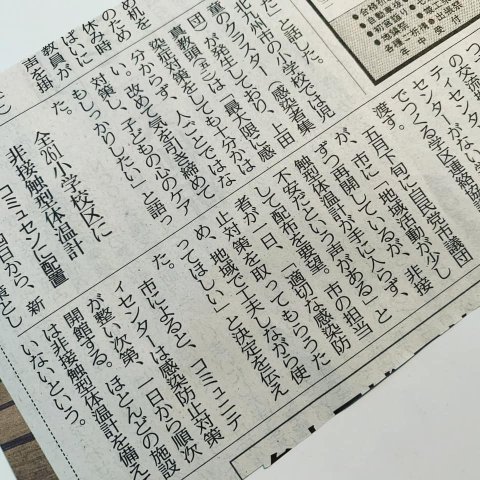 机を
のため
休み時
ばいに
教員が
声を掛
た」と話した。
北九州市の小学校では児
童のクラスター(感染者集
団)が発生しており、上田
真教頭は「最大限に感
染症対策をしても十分かは
分からず、人ごとではな
い。改めて気を引き締めて
対策し、子どもの心のケア
もしっかりしたい」と語っ
た。
全20小学校区に
非接触型体温計
コミュセンに配置
四日から、新
落とし
の交流セン
センターがない
でつくる学区連絡協
渡す。
五月下旬に自民党市議団
が、市に「地域活動が少し
ずつ再開しているが、非接
触型体温計が手に入らず、
不安だという声がある」と
して配布を要望。市の担当
者が一日、「適切な感染防
止対策を取ってもらうた
め、地域で工夫しながら使
ってほしい」と決定を伝え
た。
市によると、コミュニテ
ィセンターは感染防止対策
が整い次第、一日から順次
開館する。ほとんどの施設
は非接触型体温計を備えて
いないという。